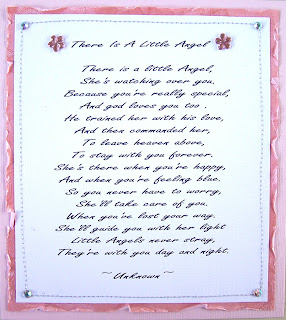 There Is A Little Angel
There is a little Angel,
She's watching over you,
Because you're really special,
And god loves you too .
He trained her with his love,
And then commanded her,
To leave heaven above,
To stay with you forever.
She's there when you're happy,
And when you're feeling blue.
So you never have to worry,
She'll take care of you.
When you've lost your way.
She'll guide you with her light
Little Angels never stray,
They're with you day and night.
~Unknown~